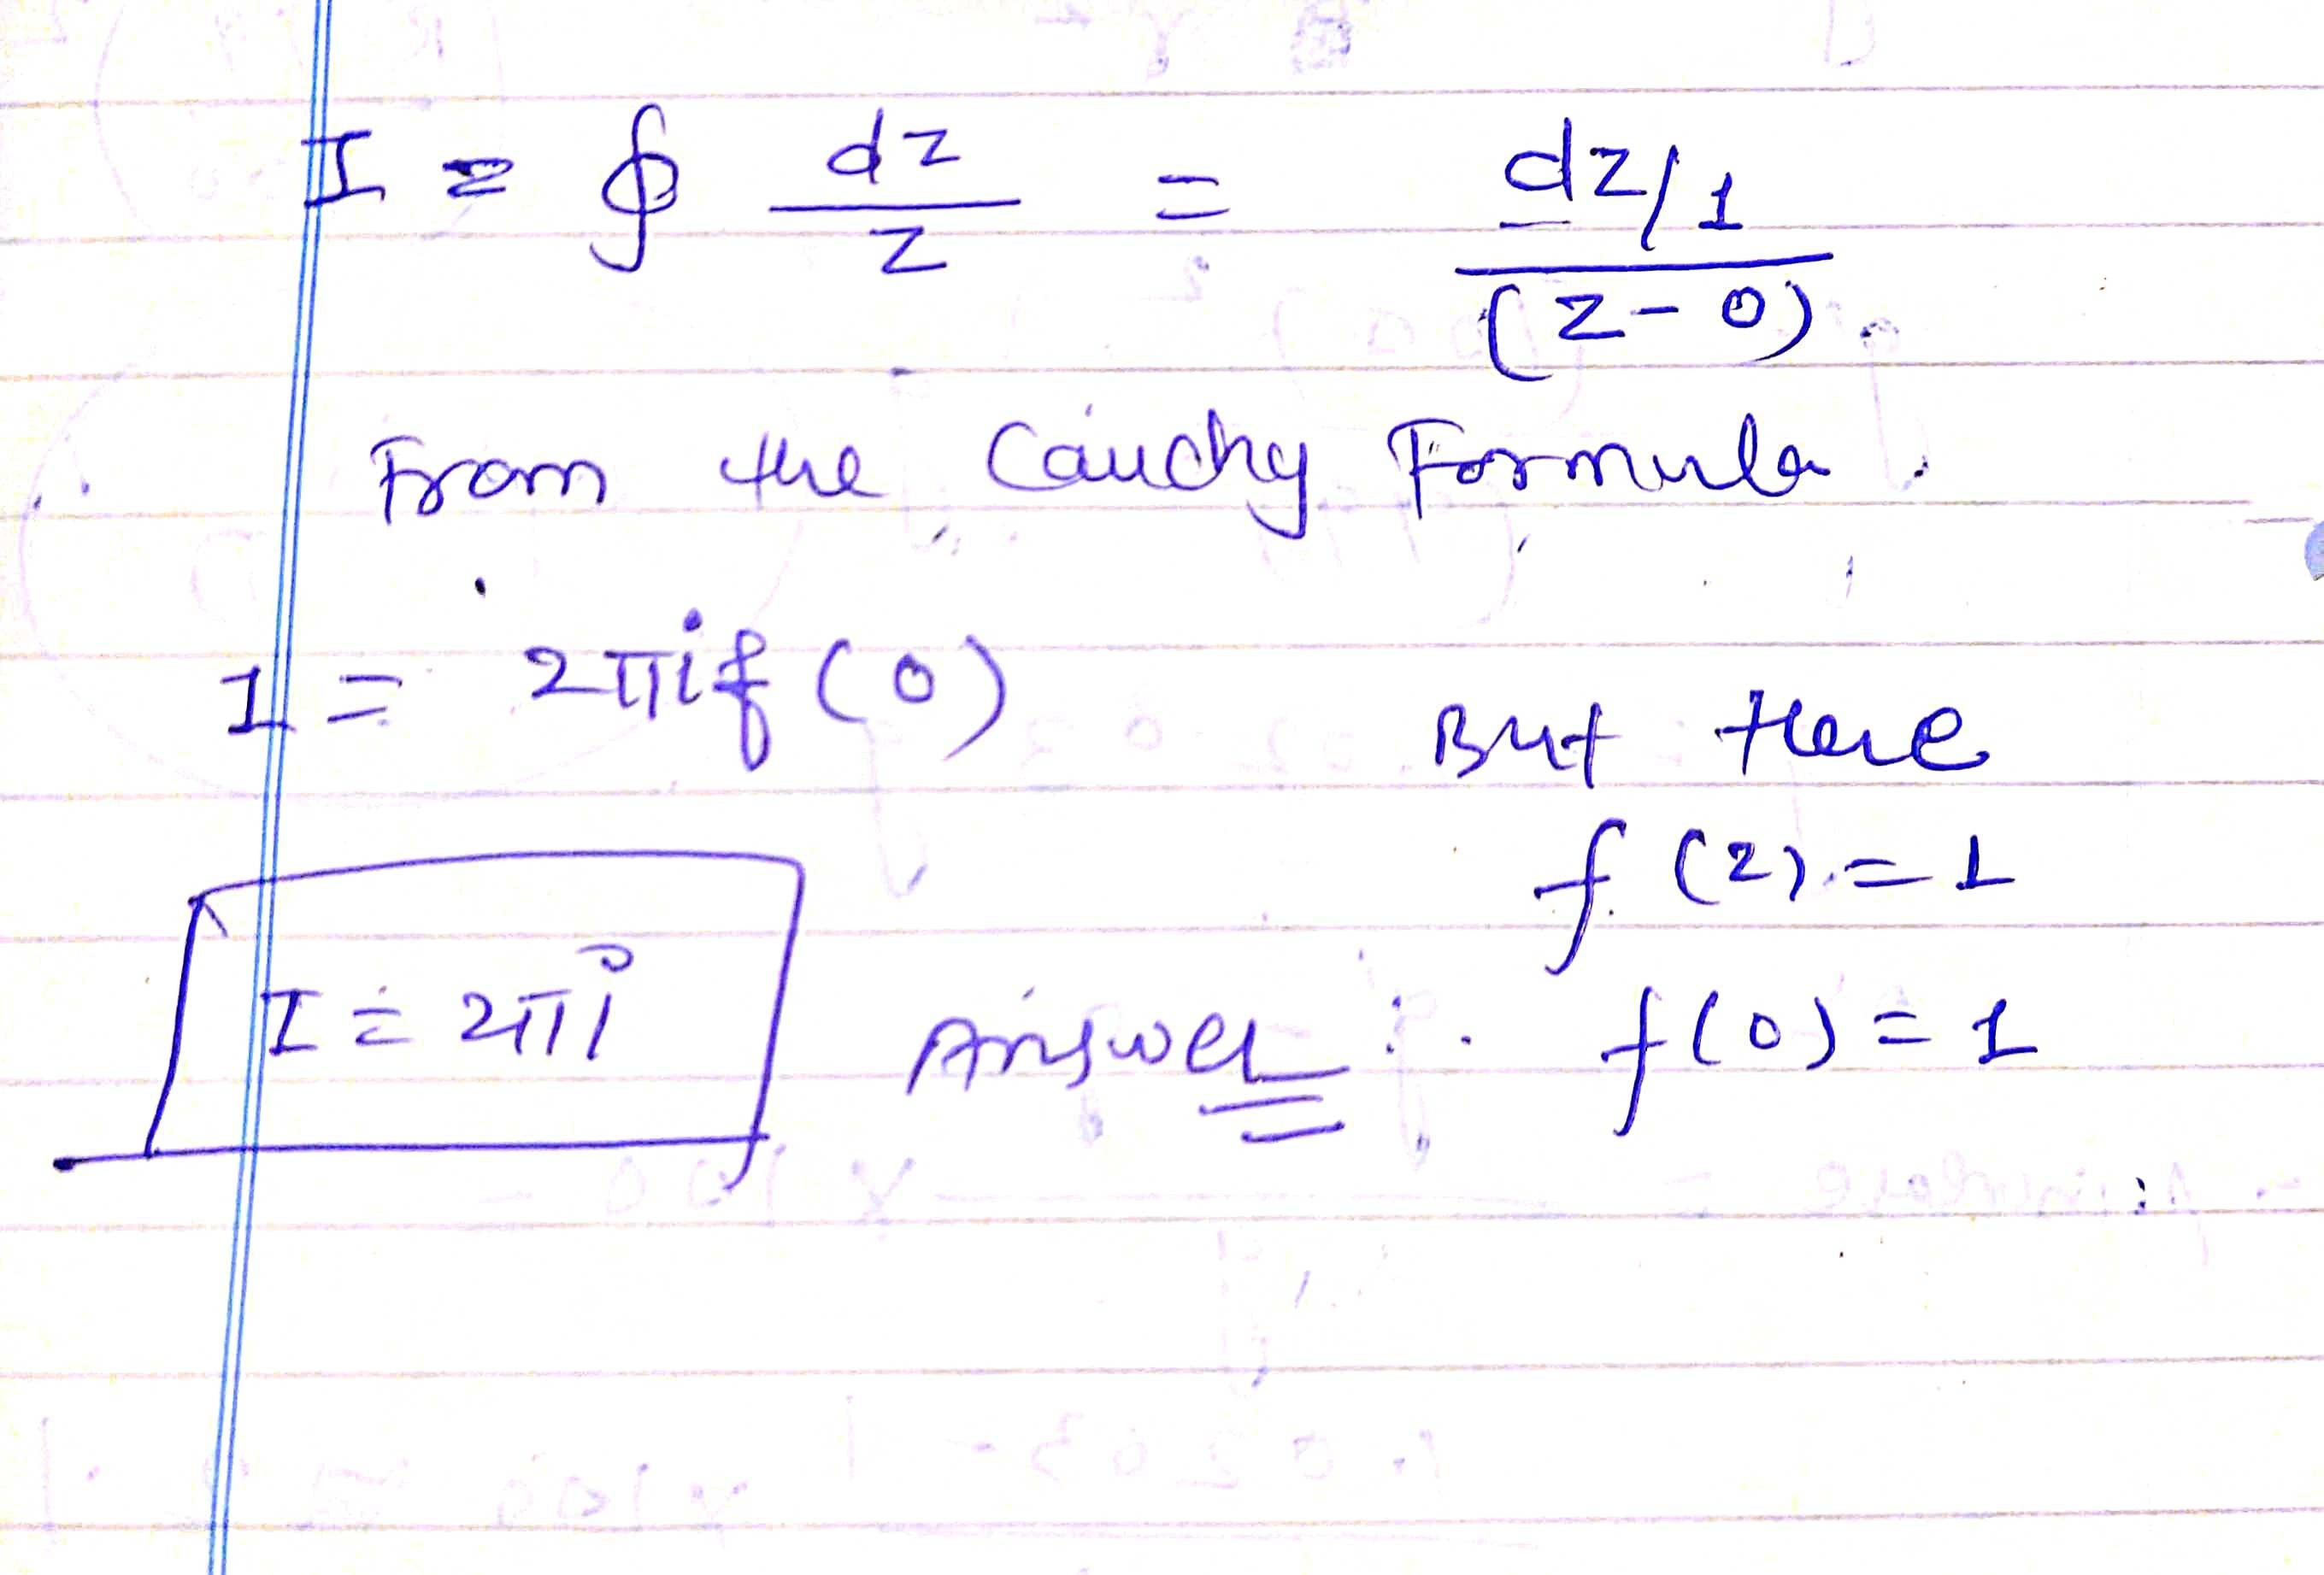 I = ∮ dz/z = dz/1/(z-0).
From the Cauchy Formula.
I = 2πif(0)
But here
f(z) = 1
I = 2πi Answer ∴ f(0) = 1